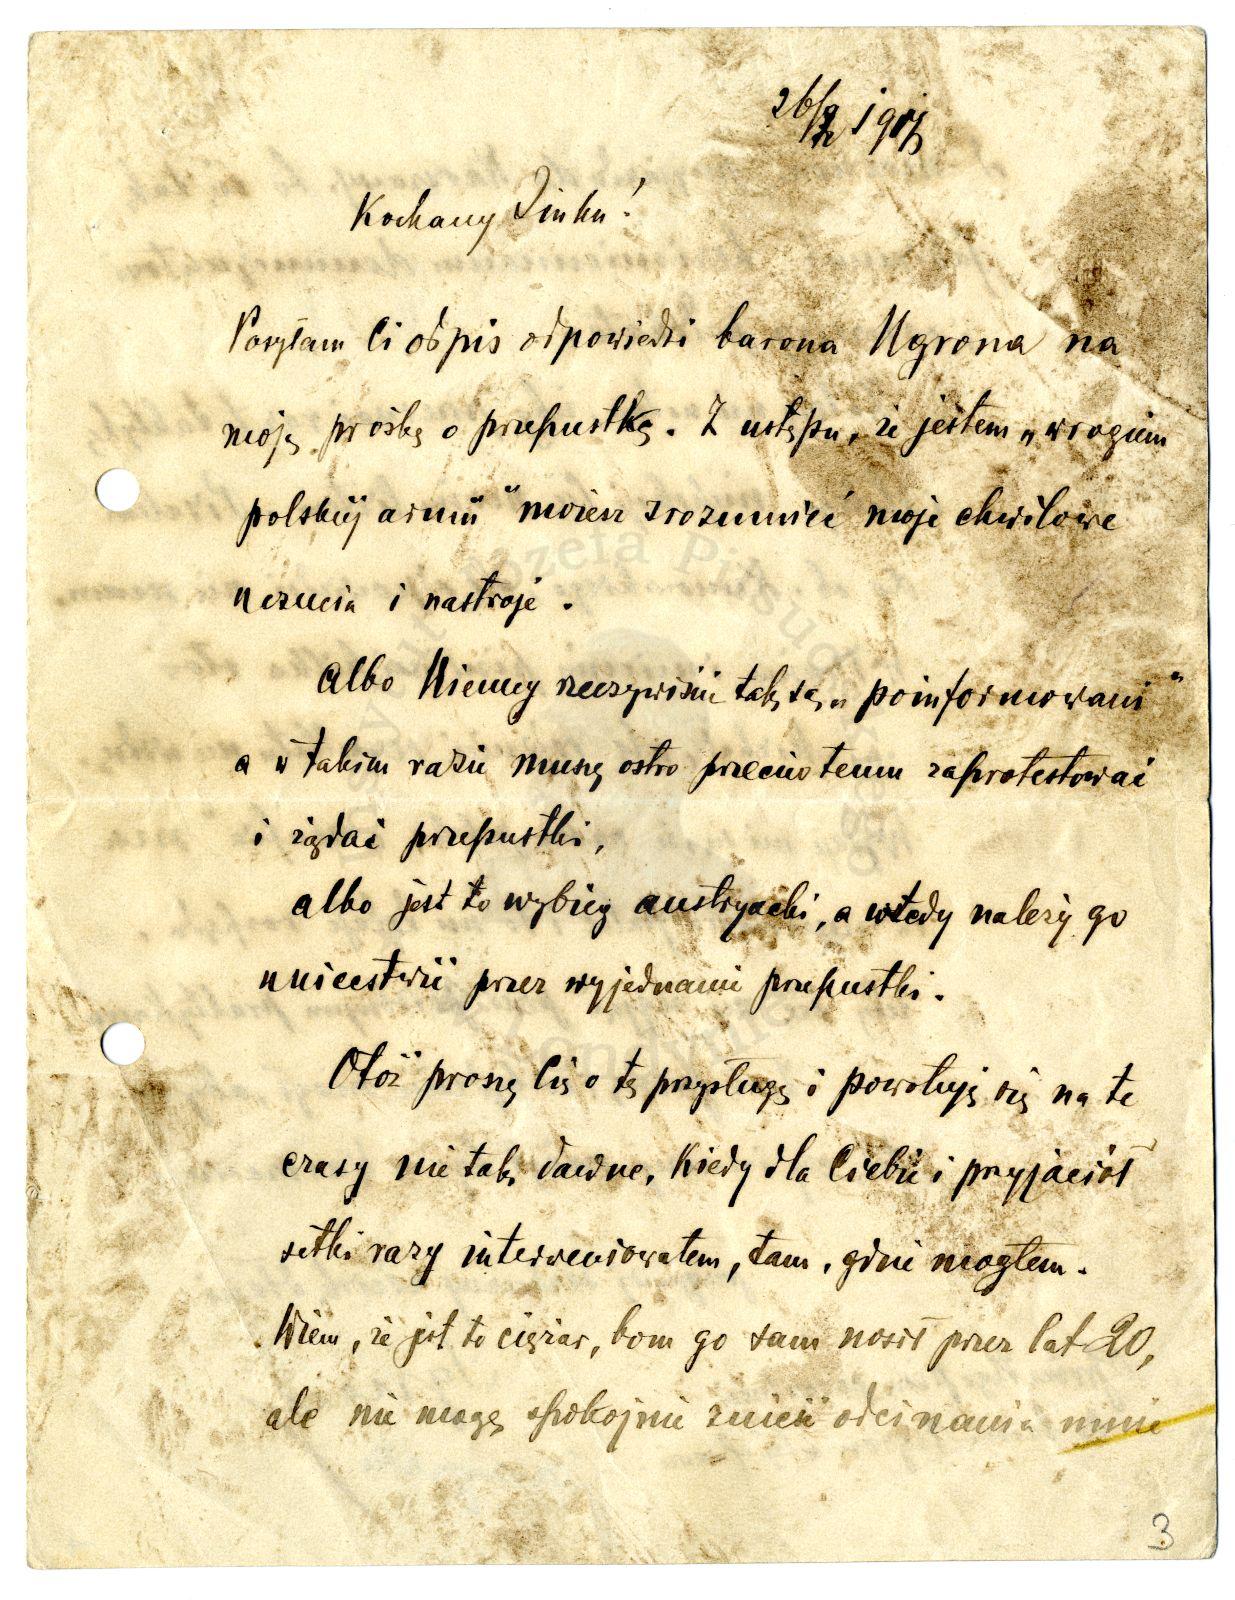 Kochany Ziuku!
Posyłam Ci odpis odpowiedzi barona Ugrona na
moją prośbę o przepustkę. Z ustępu, że jestem „wrogiem
polskiej armii" możesz zrozumieć moje chwilowe
uczucia i nastroje.
Albo Niemcy rzeczywiście tak są „poinformowani"
a w takim razie muszę ostro przeciw temu zaprotestować
i żądać przepustki,
albo jest to wybieg austryacki, a wtedy należy go
unicestwić przez wyjednanie przepustki.
Otóż proszę Cię o tę przysługę i powołuję się na te
czasy nie tak dawne, kiedy dla Ciebie i przyjaciół
setki razy interweniowałem, tam, gdzie mogłem.
Wiem, że jest to ciężar, bom go sam nosił przez lat 20,
ale nie mogę spokojnie znieść odcinania mnie
3